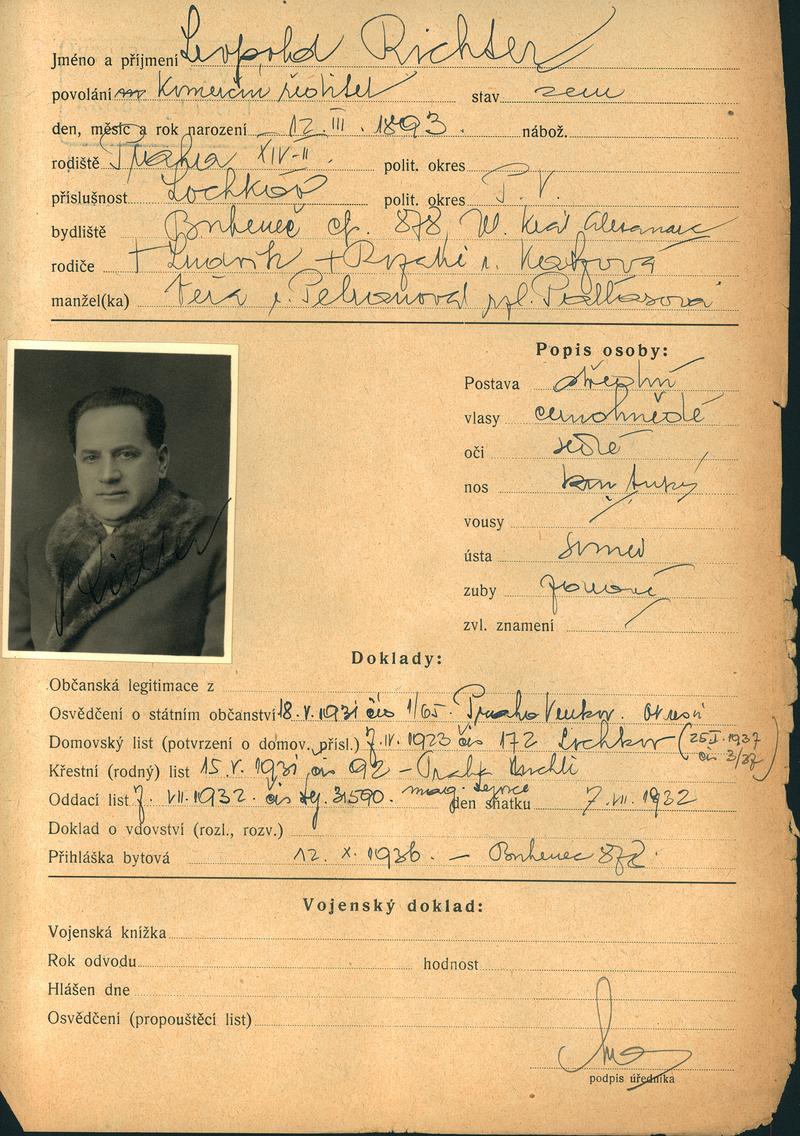 Jméno a příjmení Leopold Richter
povolání Komerční ředitel stav žen
den, měsíc a rok narození 12. III. 1893. nábož.
rodiště Praha XIV-II. polit. okres
příslušnost Lochkov polit. okres P. V.
bydliště Bubeneč čp. 878,
rodiče † Ludvík + r. Katzová
manžel(ka) Věra r.
Popis osoby:
Postava střední
vlasy černohnědé
oči šedé
nos
vousy /
ústa
zuby
zvl. znamení /
Richter
Doklady:
Občanská legitimace z
Osvědčení o státním občanství 18. V. 1931 čís 1/65. Praha Venkov.
Domovský list (potvrzení o domov. přísl.) 7. IV. 1923 čís 172 Lochkov (25. I. 1937 čís 3/37)
Křestní (rodný) list 15. V. 1931 čís 92 – Praha
Oddací list 7. VII. 1932. čís 31590. mag. den sňatku 7. VII. 1932
Doklad o vdovství (rozl., rozv.)
Přihláška bytová 12. X. 1936. — Bubeneč 878.
Vojenský doklad:
Vojenská knížka
Rok odvodu hodnost
Hlášen dne
Osvědčení (propouštěcí list)
podpis úředníka